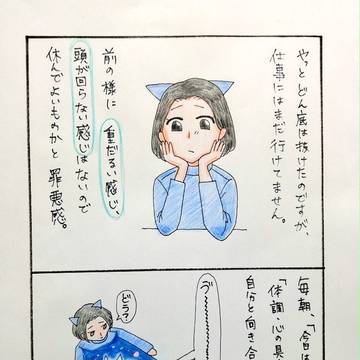 やっとどん底は抜けたのですが、
仕事にはまだ行けてません。
前の様に重だるい感じ、
頭が回らない感じはないので
休んでよいものかと罪悪感。
毎朝、「今日は
「体調・心の具
自分と向き合
う〜
どう?